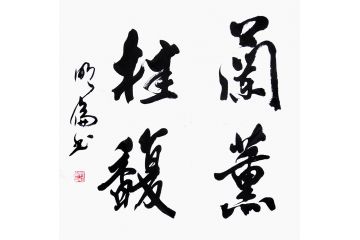 蘭薰
桂馥